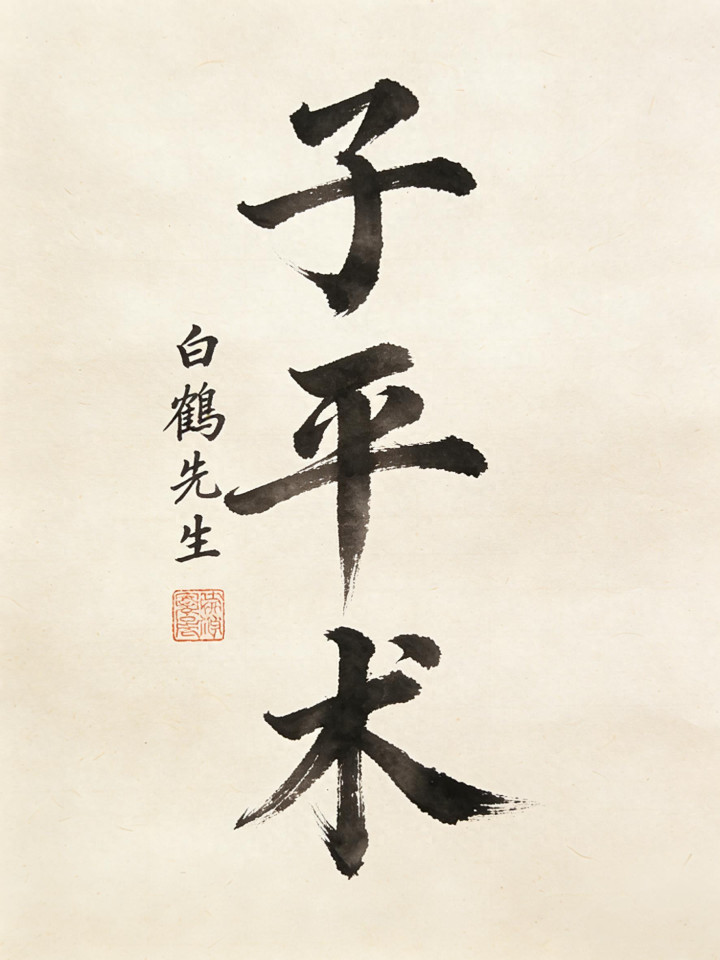 子平术
白鹤先生